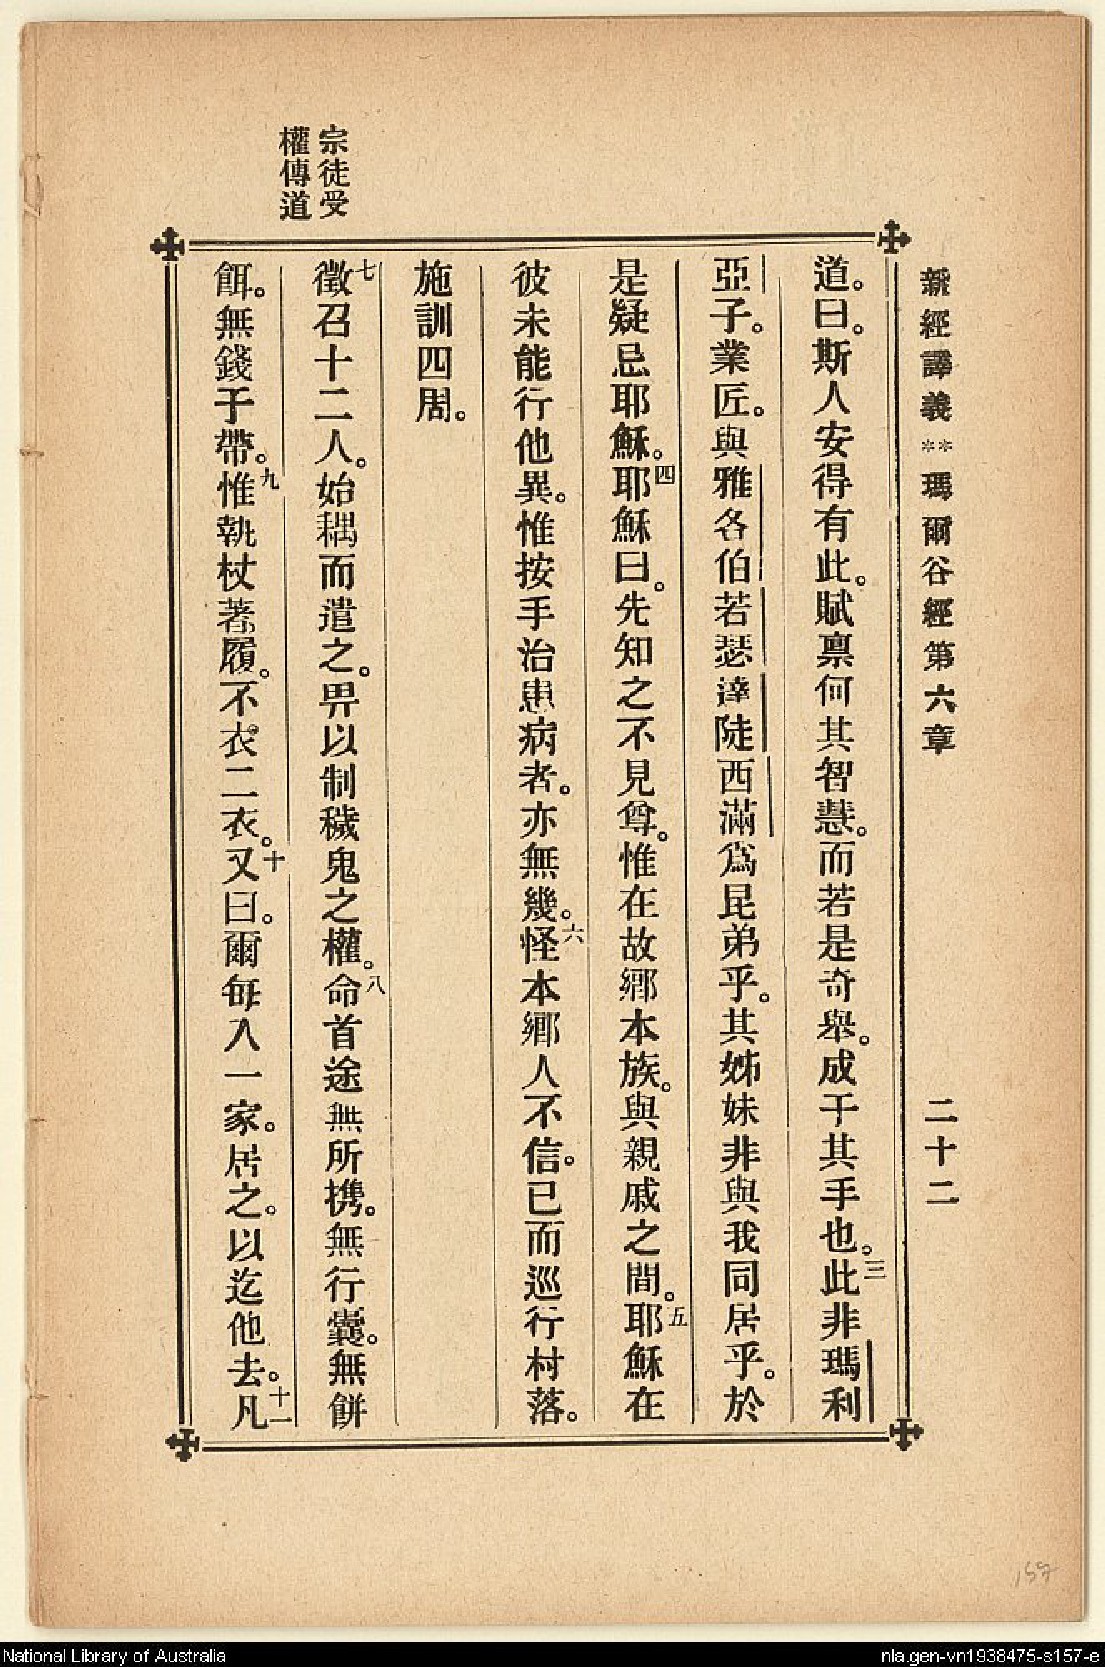 新經譯義**瑪爾谷經第六章 二十二
道。曰。斯人安得有此。賦禀何其智慧。而若是奇舉。成于其手也。三此非瑪利
亞子。業匠。與雅各伯若瑟達陡西滿爲昆弟乎。其姊妹非與我同居乎。於
是疑忌耶穌。四耶穌曰。先知之不見尊。惟在故鄉本族。與親戚之間。五耶穌在
彼未能行他異。惟按手治患病者。亦無幾。六怪本鄉人不信。已而巡行村落。
施訓四周。
宗徒受
權傳道
七徵召十二人。始耦而遣之。畀以制穢鬼之權。八命首途無所携。無行囊。無餅
餌。無錢于帶。九惟執杖著履。不衣二衣。十又曰。爾每入一家。居之。以迄他去。十一凡
157
National Library of Australia
nla.gen-vn1938475-s157-e